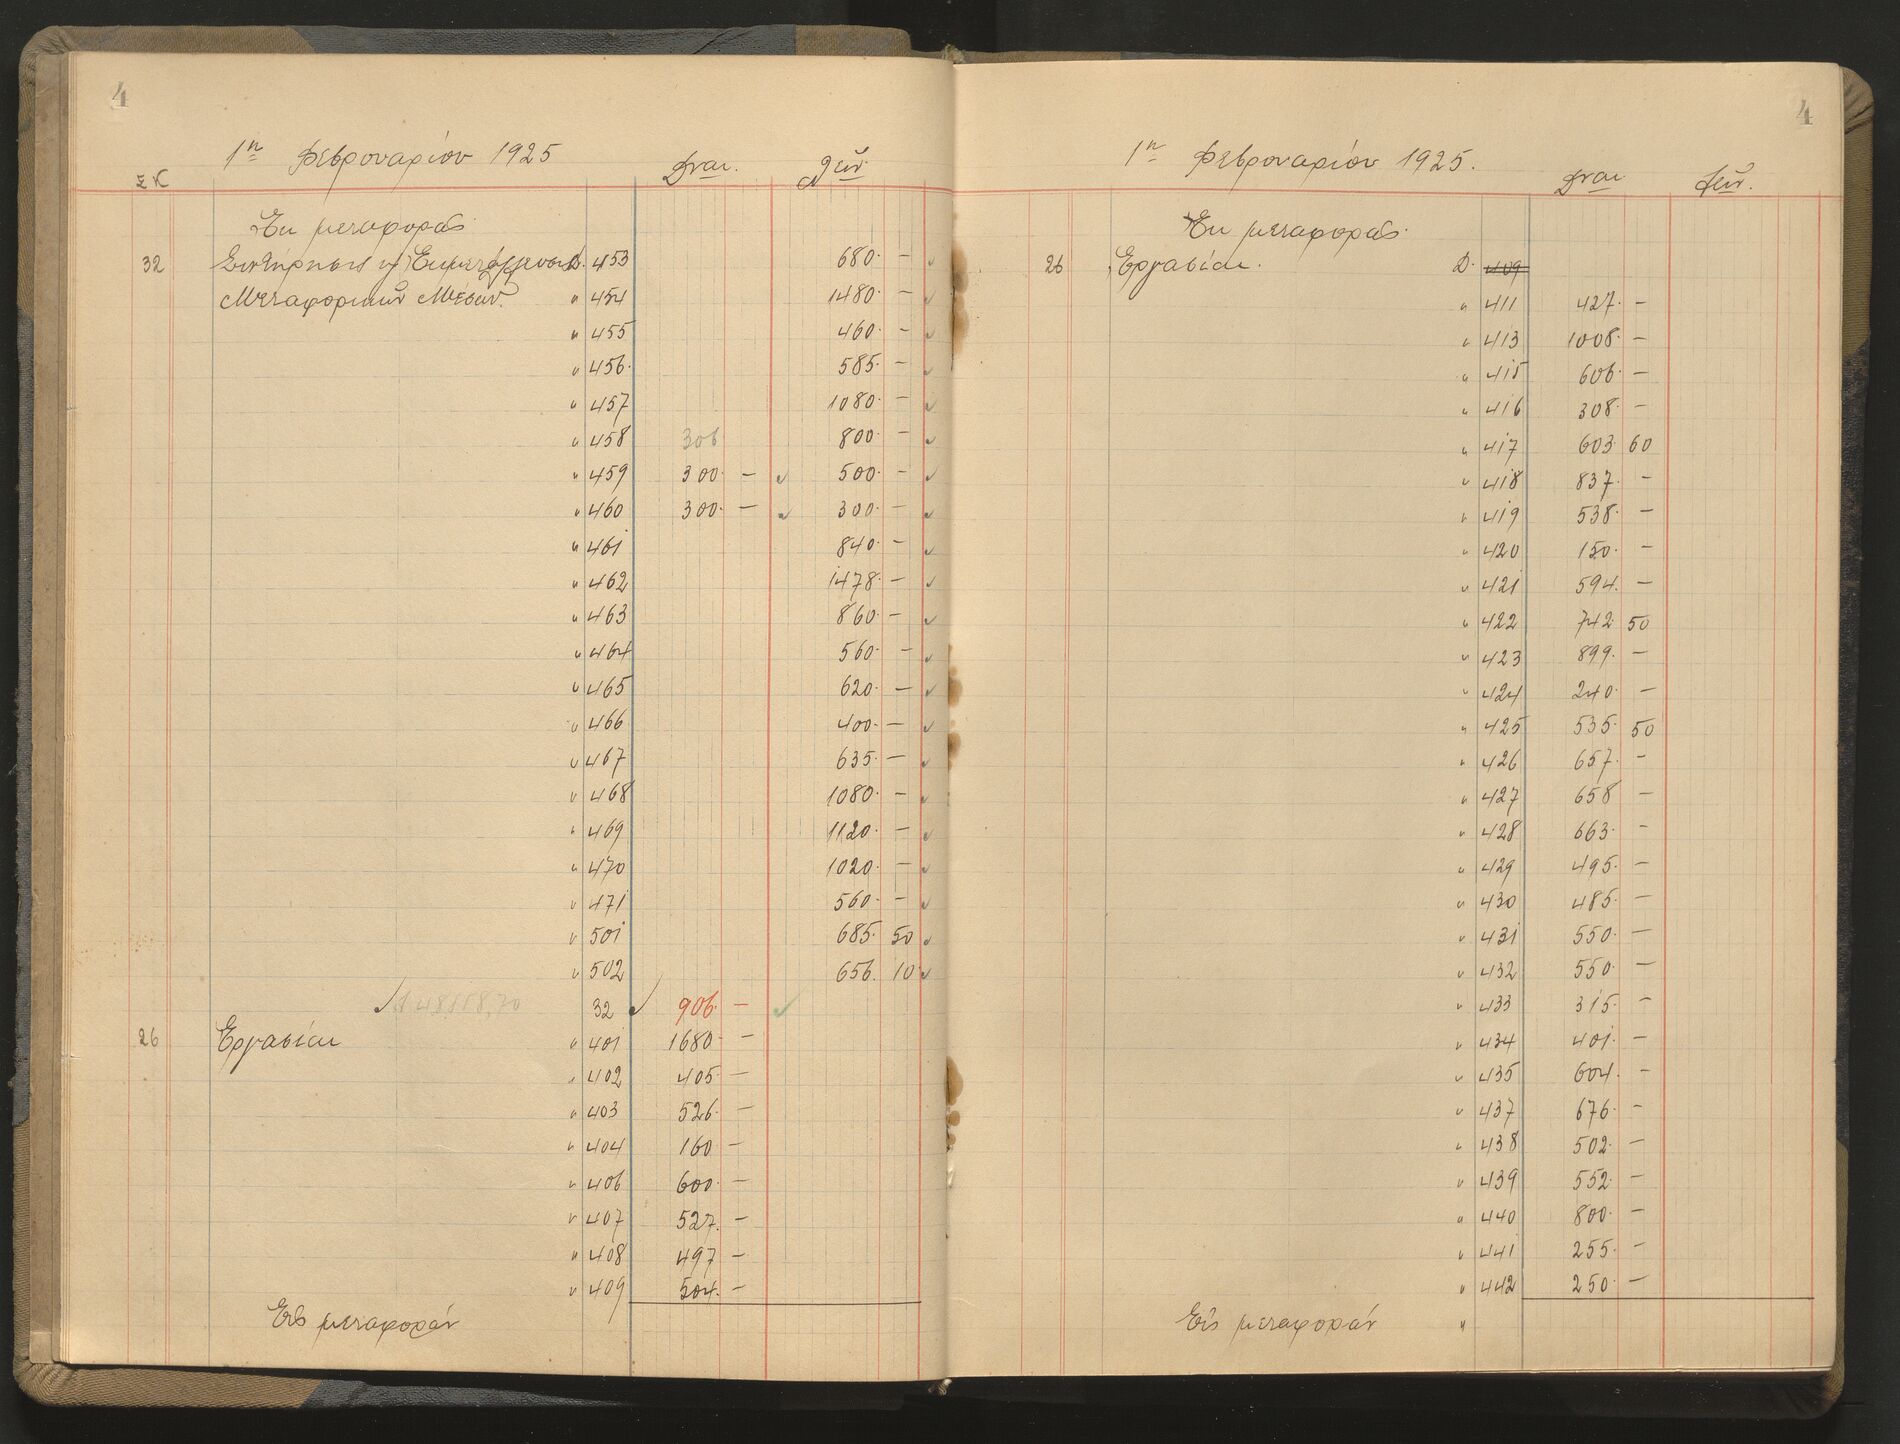 4
1η Φεβρουαρίου 1925
Σ Κ Δραχ.
Ἐκ μεταφορᾶς
32 Συντήρησις κ/ Ἐκμετάλλευσις Δ. 453 680 -
Μεταφορικῶν Μέσων. " 454 1480 -
" 455 460 -
" 456 585 -
" 457 1080 -
" 458 306 800 -
" 459 300 - ✓ 500 -
" 460 300 - ✓ 300 -
" 461 840 -
" 462 1478 -
" 463 860 -
" 464 560 -
" 465 620 -
" 466 400 -
" 467 635 -
" 468 1080 -
" 469 1120 -
" 470 1020 -
" 471 560 -
" 501 685 50
" 502 656 10
32 ✓ 906 - ✓
26 Ἐργασίαι " 401 1680 -
" 402 405 -
" 403 526 -
" 404 160 -
" 406 600 -
" 407 527 -
" 408 497 -
" 409 504 -
Εἰς μεταφοράν
4
1η Φεβρουαρίου 1925.
Δραχ
Ἐκ μεταφορᾶς
26 Ἐργασίαι. Δ. 409
" 411 427 -
" 413 1008 -
" 415 606 -
" 416 308 -
" 417 603 60
" 418 837 -
" 419 538 -
" 420 150 -
" 421 594 -
" 422 742 50
" 423 899 -
" 424 240 -
" 425 535 50
" 426 657 -
" 427 658 -
" 428 663 -
" 429 495 -
" 430 485 -
" 431 550 -
" 432 550 -
" 433 315 -
" 434 401 -
" 435 604 -
" 437 676 -
" 438 502 -
" 439 552 -
" 440 800 -
" 441 255 -
" 442 250 -
Εἰς μεταφοράν "